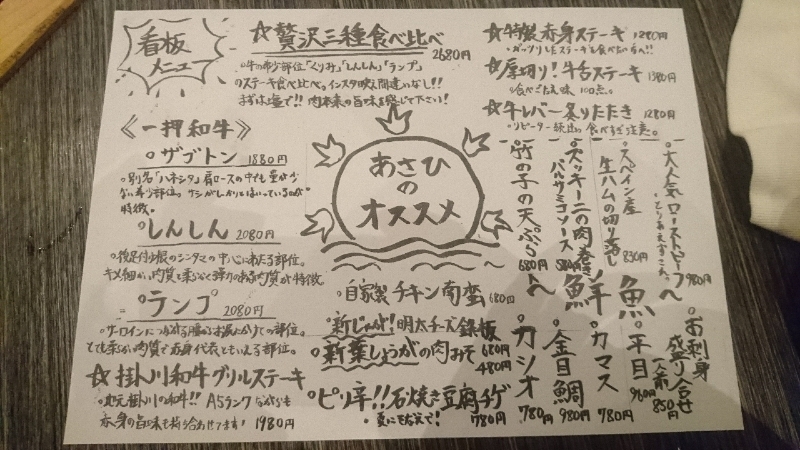 看板メニュー
☆贅沢三種食べ比べ 2680円
。牛の希少部位「くりみ」「しんしん」「ランプ」
のステーキ食べ比べ。インスタ映え間違いなし!!
まずは塩で!! 肉本来の旨味を感じて下さい!
☆特製赤身ステーキ 1280円
。ガッツリしたステーキを食べたい方へ!!
☆厚切り!牛舌ステーキ 1380円
。食べごたえ、味、100点。
☆牛レバー炙りたたき 1280円
。リピーター続出。食べすぎ注意。
《一押和牛》
。ザブトン 1880円
。別名「ハネシタ」肩ロースの中でも量が少
ない希少部位。サシがしっかりとはいっているのが
特徴。
。しんしん 2080円
。後足付け根のシンタマの中心にあたる部位。
キメ細かい肉質と柔らかく弾力のある肉質が特徴。
。ランプ 2080円
。サーロインにつながる腰からお尻にかけての部位。
とても柔らかい肉質で赤身代表ともいえる部位。
☆掛川和牛グリルステーキ
。地元掛川の和牛!! A5ランクながらも
赤身の旨味も持ち合わせてます! 1980円
あさひ
の
オススメ
大人気ローストビーフ 980円
。とりあえずこれ。
スペイン産
生ハムの切り落し 830円
ズッキーニの肉巻
バルサミコソース 580円
竹の子の天ぷら 680円
自家製チキン南蛮 680円
新じゃが!明太チーズ鉄板 680円
新葉しょうがの肉みそ 480円
ピリ辛!!石焼き豆腐チゲ 780円
〜鮮魚〜
お刺身
盛り合せ
一人前 850円
平目 960円
カマス 780円
金目鯛 980円
カツオ 780円